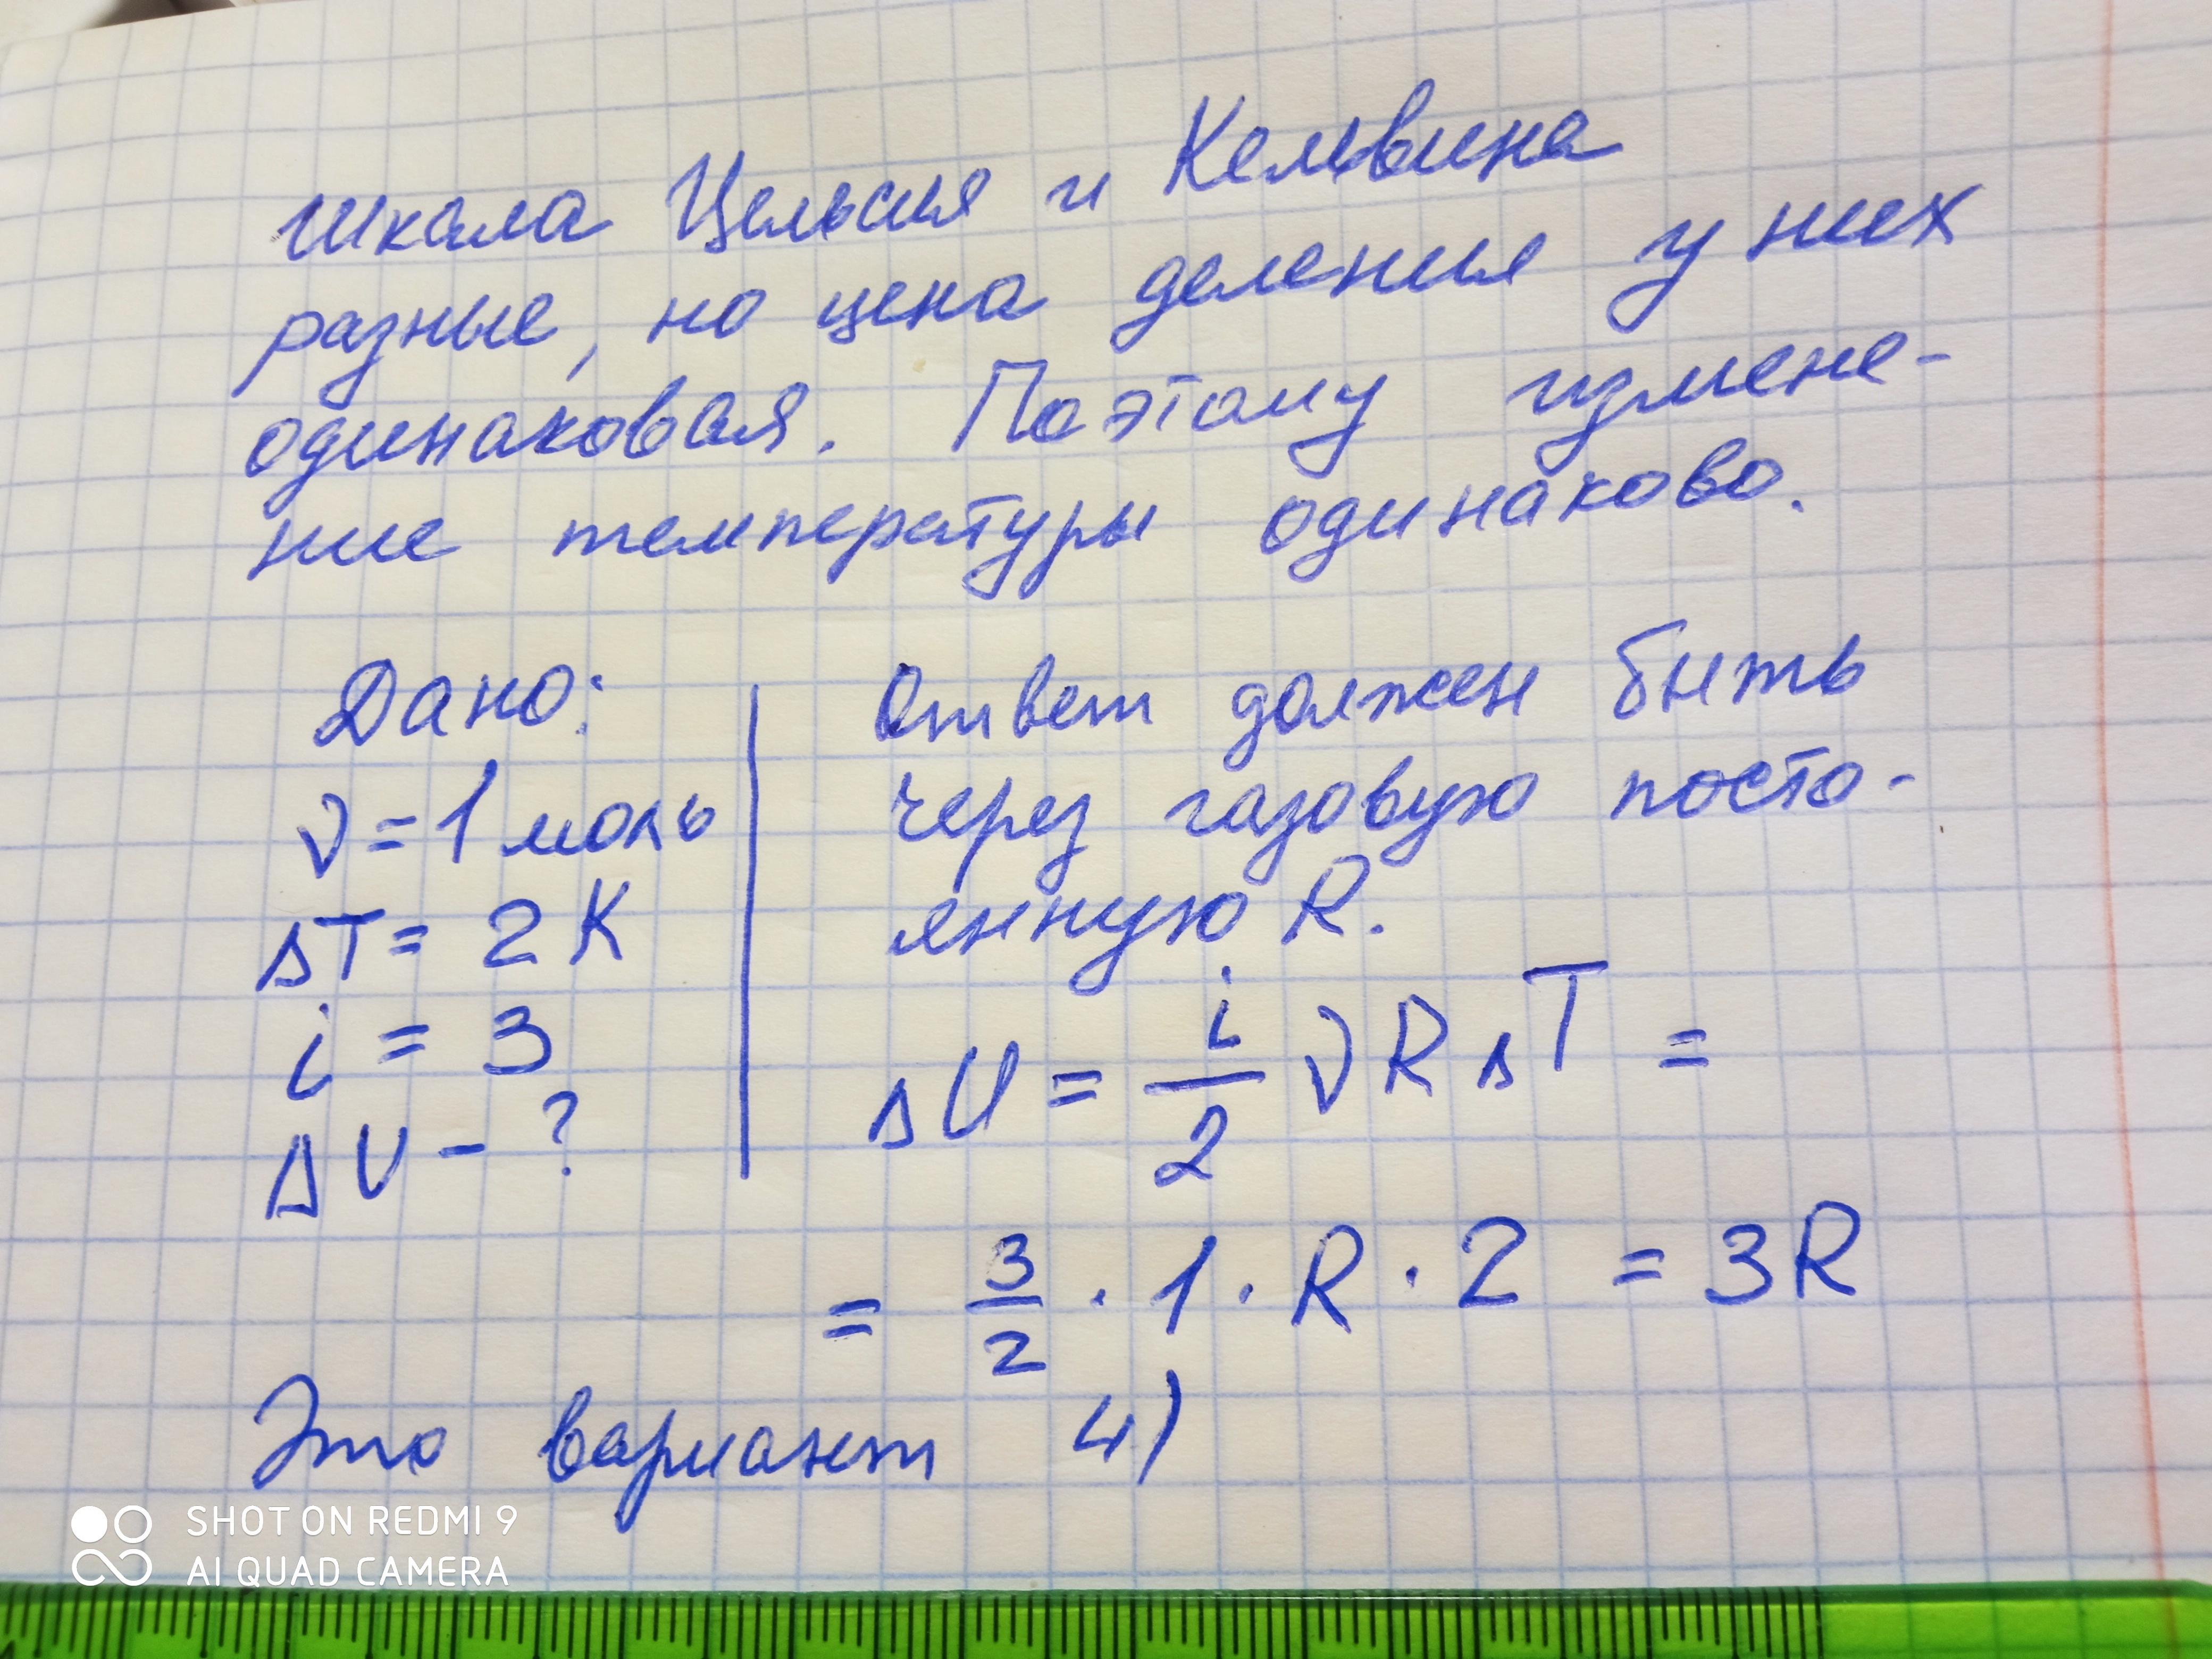 Шкала Цельсия и Кельвина
разные, но цена деления у них
одинаковая. Поэтому измене-
ние температуры одинаково.
Дано:
ν = 1 моль
ΔT = 2 K
i = 3
ΔU - ?
Ответ должен быть
через газовую посто-
янную R.
ΔU = i/2 ν R ΔT =
= 3/2 · 1 · R · 2 = 3R
Это вариант 4)
SHOT ON REDMI 9
AI QUAD CAMERA